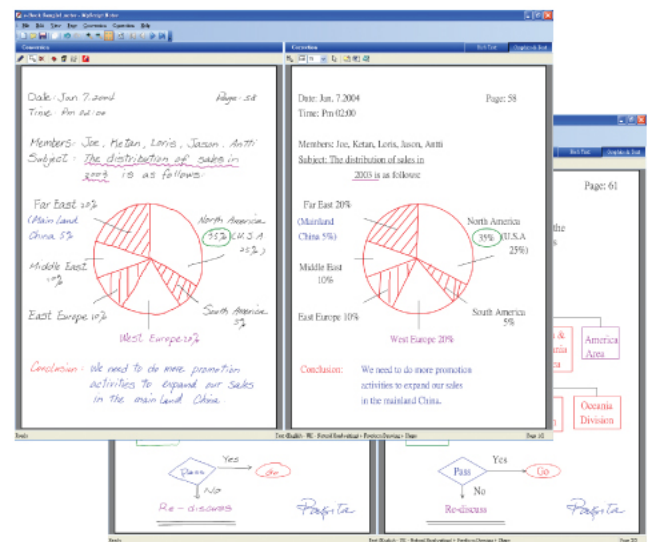 File Edit View Page Conversion Correction Help
Conversion
Correction
Date: Jan. 7. 2004 Page: 58
Time: Pm 02:00
Members: Joe, Ketan, Loris, Jason, Antti
Subject: The distribution of sales in
2003 is as follows:
Far East 20%
(Main Land
China 5%
North America
35% (U.S.A
25%)
Middle East
10%
East Europe 10%
South America
5%
West Europe 20%
Conclusion: We need to do more promotion
activities to expand our sales
in the main Land China.
Date: Jan. 7.2004 Page: 58
Time: Pm 02:00
Members: Joe, Ketan, Loris, Jason, Antti
Subject: The distribution of sales in
2003 is as follows:
Far East 20%
(Mainland
China 5%)
North America
35% (U.S.A
25%)
Middle East
10%
East Europe 10%
South America
5%
West Europe 20%
Conclusion: We need to do more promotion
activities to expand our sales
in the mainland China.
Ready
Page: 61
the
America
Area
Oceania
Division
Pass
Yes
Go
No
Re-discuss
Pass
Yes
Go
No
Re-discuss
Ready